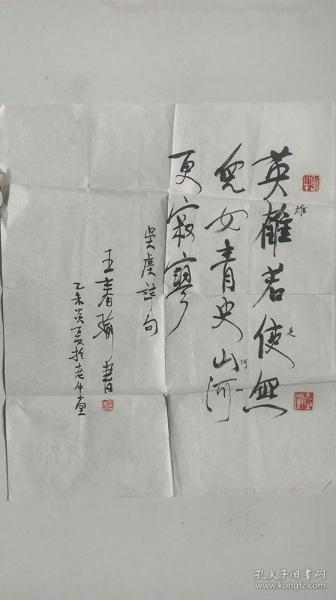 英雄若使無
兒女青史山河
更寂寥
吳虞詩句
王春瑜書
乙未炎夏於老牛堂
雄
是
河
孔夫子旧书网